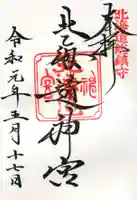 北海道総鎮守
奉拝
北海道神宮
令和元年五月十七日